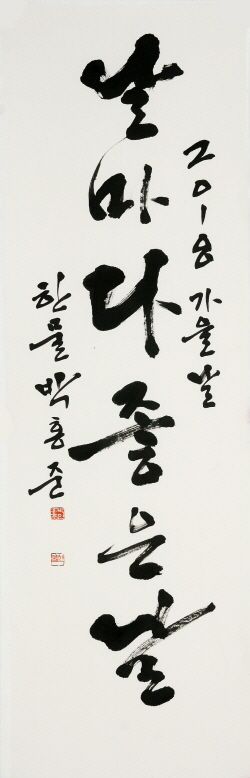 날마다좋은날
2018 가을날
한물 박홍준